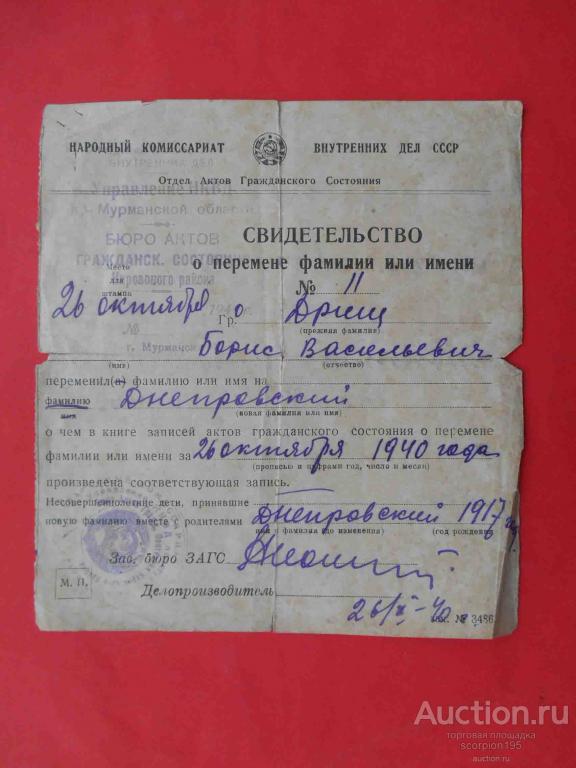 НАРОДНЫЙ КОМИССАРИАТ ВНУТРЕННИХ ДЕЛ СССР
Отдел Актов Гражданского Состояния
ВНУТРЕННИХ ДЕЛ
Управление НКВД
Мурманской области
БЮРО АКТОВ
ГРАЖДАНСК. СОСТОЯНИЯ
Кировского района
СВИДЕТЕЛЬСТВО
о перемене фамилии или имени
Место
для
штампа
№ 11
26 октября 194
Гр. Дрищ
(прежняя фамилия)
№
г. Мурманск
Борис Васильевич
(имя) (отчество)
переменил(а) фамилию или имя на
фамилию Днепровский
имя (новая фамилия или имя)
о чем в книге записей актов гражданского состояния о перемене
фамилии или имени за 26 октября 1940 года
(прописью и цифрами год, число и месяц)
произведена соответствующая запись.
Несовершеннолетние дети, принявшие
новую фамилию вместе с родителями Днепровский 1917
имя и фамилия (до изменения) (год рождения)
Зав. бюро ЗАГС
М. П.
Делопроизводитель
26/X-40 г.
Зак. № 3486
Auction.ru
торговая площадка
scorpion195
auction.ru